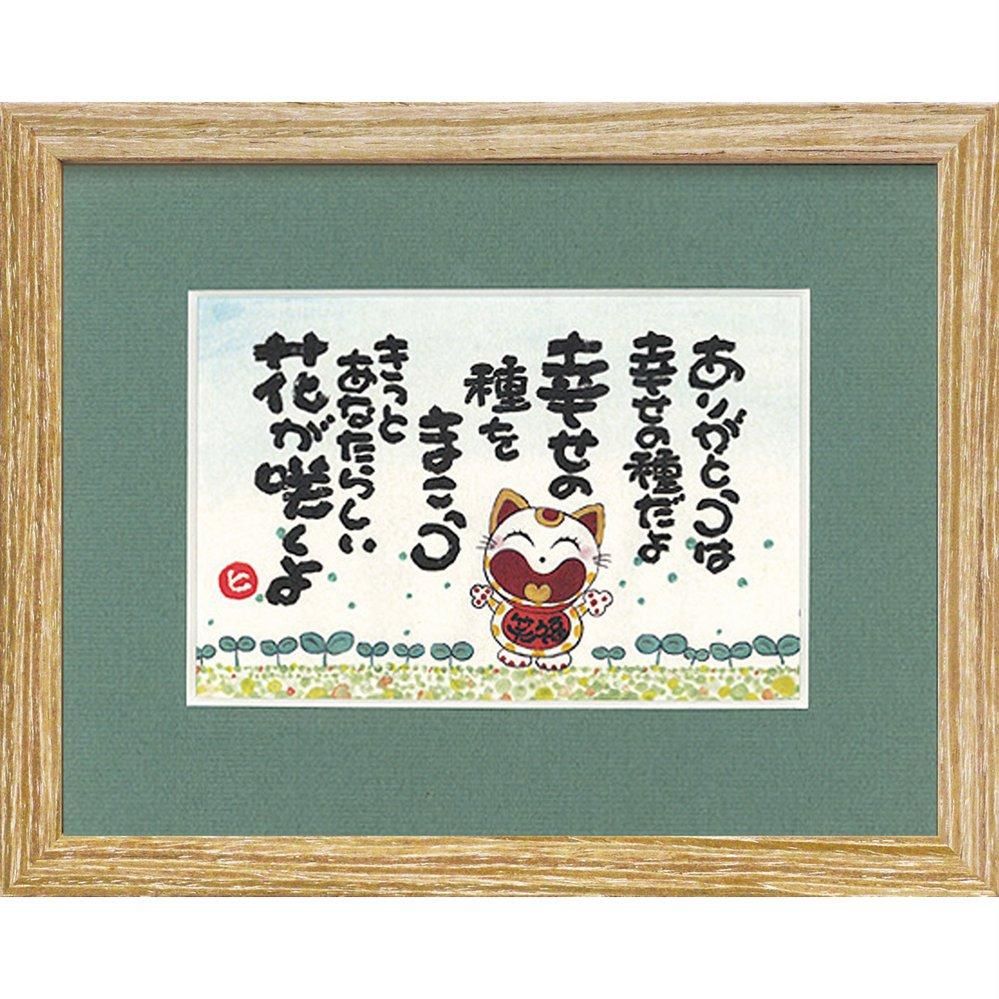 ありがとうは
幸せの種だよ
幸せの
種を
まこう
きっと
あなたらしい
花が咲くよ
笑福
ヒ